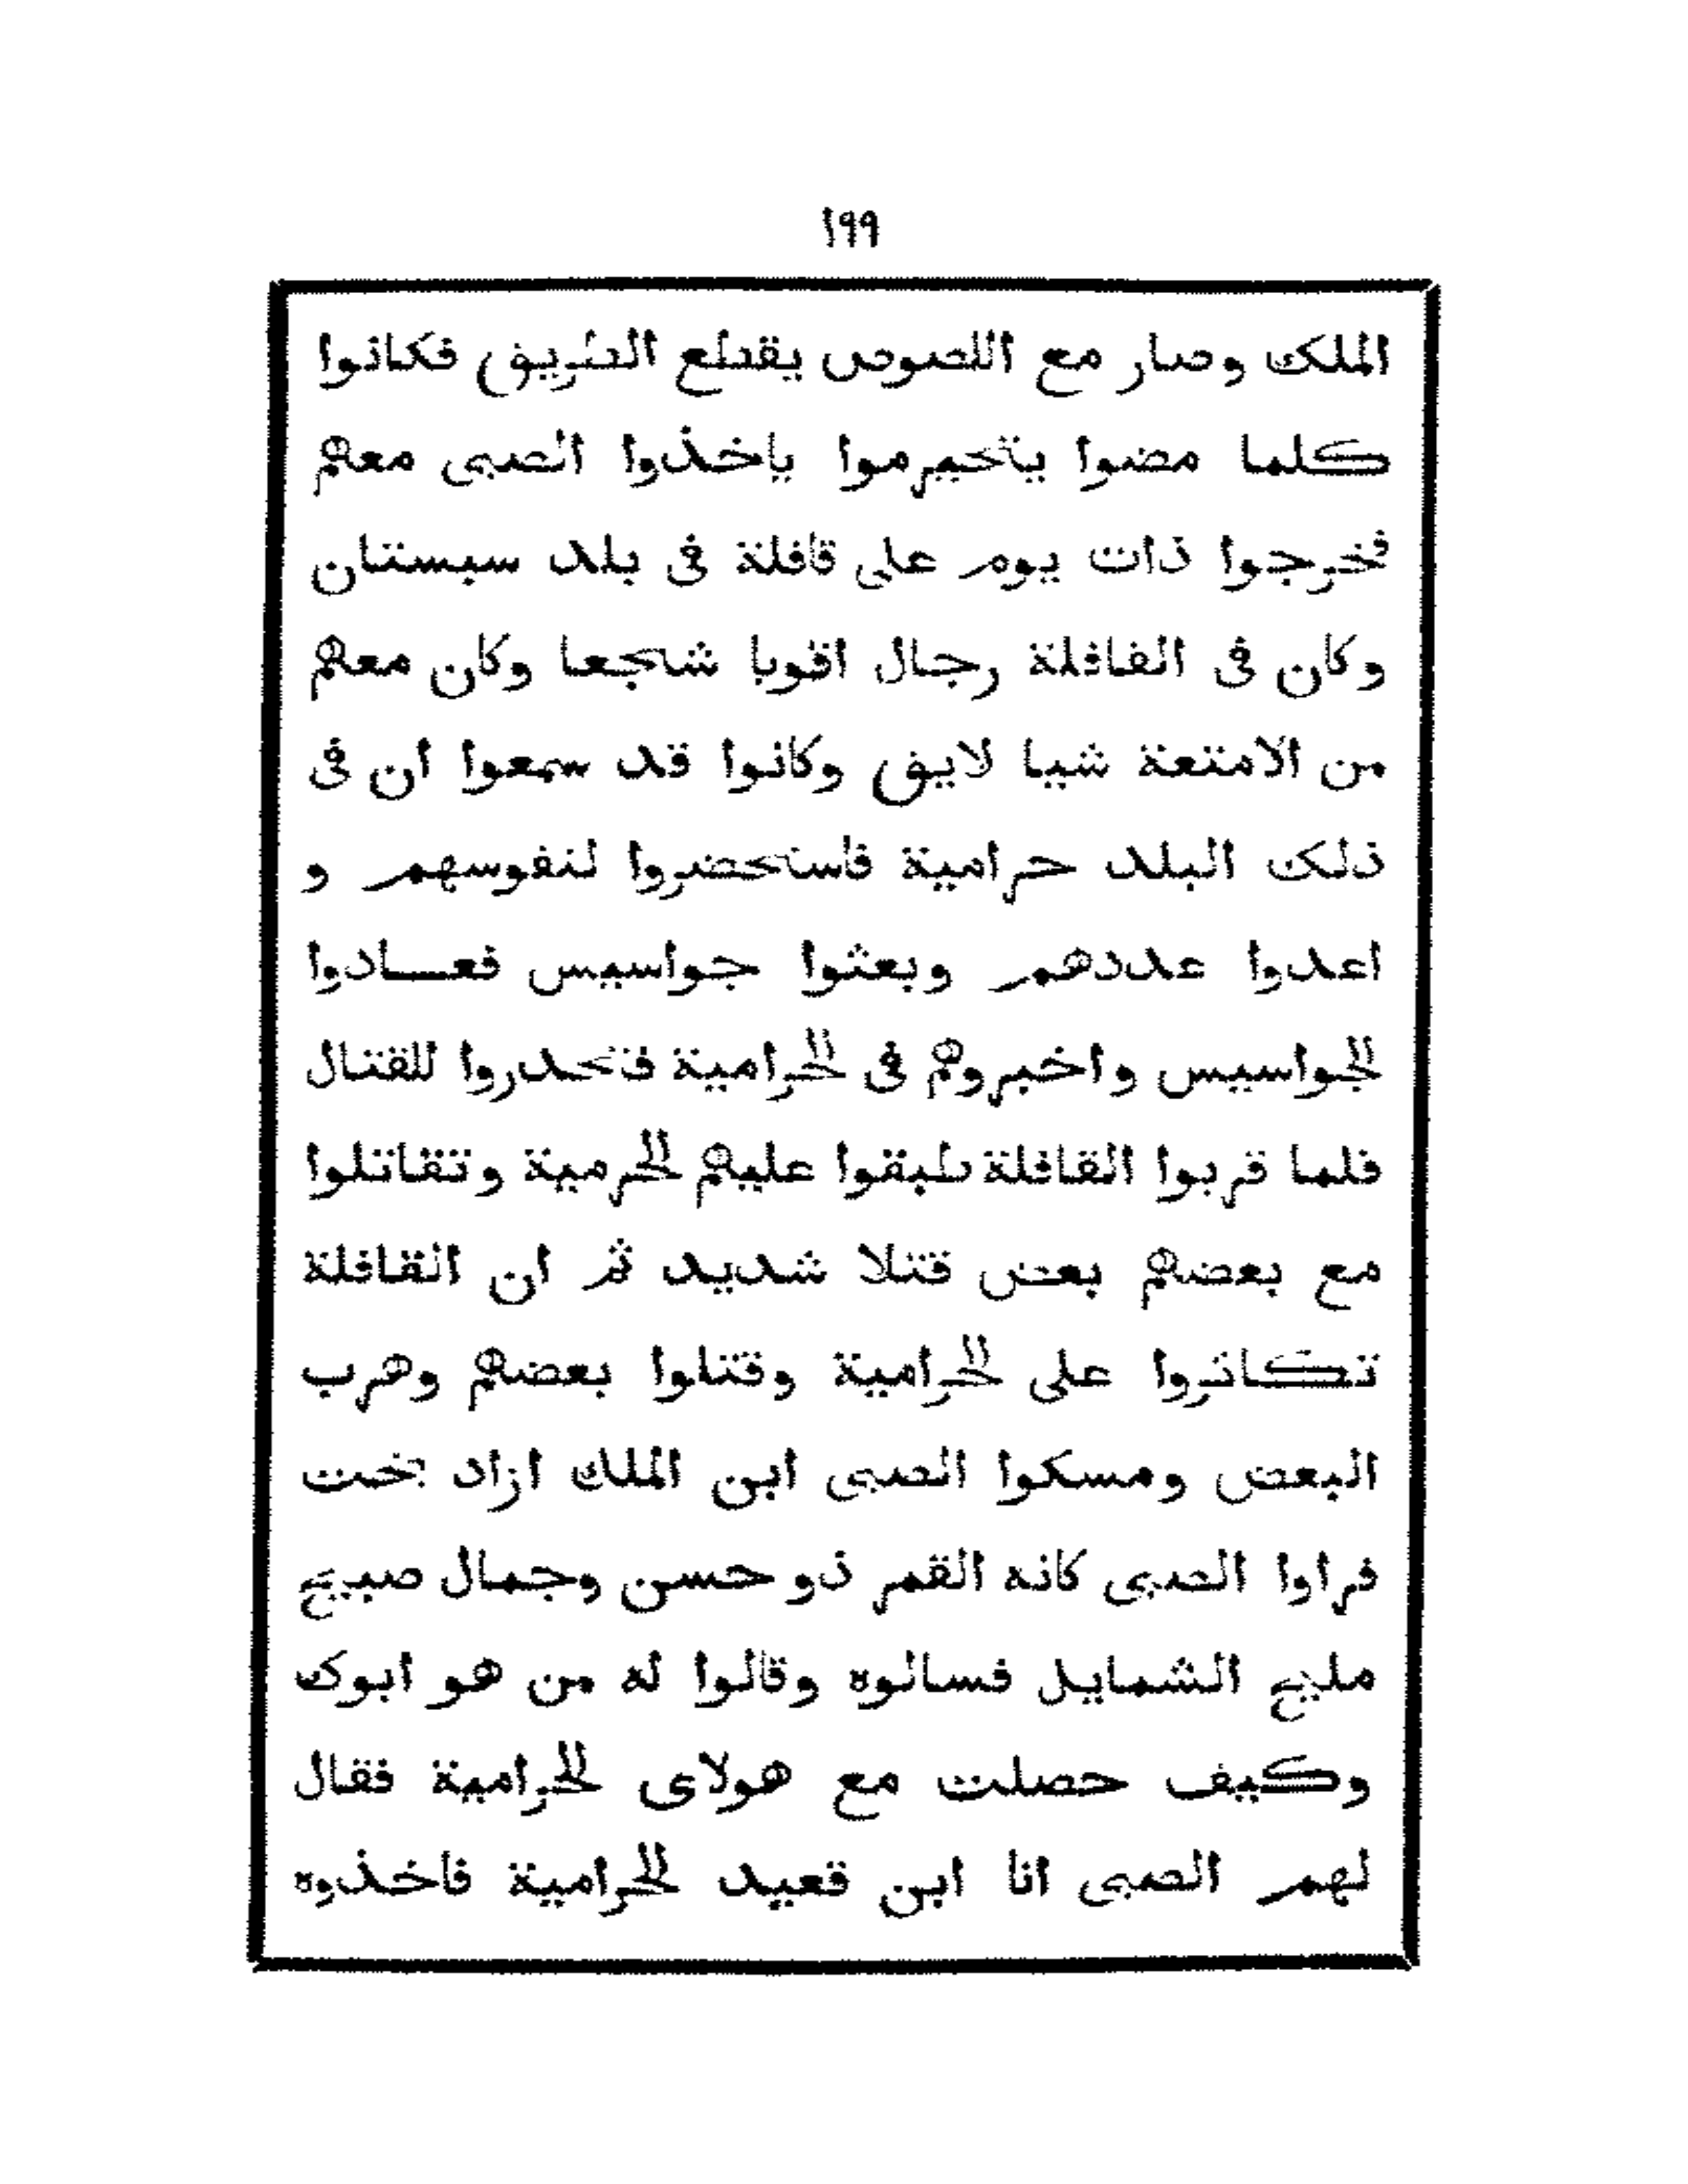 ١٩٩
الملك وصار مع اللصوص يقطع الطريق فكانوا
كلما مضوا يتحرموا ياخذوا الصبى معهم
فخرجوا ذات يوم على قافلة فى بلد سبستان
وكان فى القافلة رجال اقويا شجعا وكان معهم
من الامتعة شيا لايق وكانوا قد سمعوا ان فى
ذلك البلد حرامية فاستحضروا لنفوسهم و
اعدوا عددهم وبعثوا جواسيس فعادوا
الجواسيس واخبروهم فى الحرامية فتحدروا للقتال
فلما قربوا القافلة طبقوا عليهم الحرمية وتقاتلوا
مع بعضهم بعض قتلا شديد ثم ان القافلة
تكاثروا على الحرامية وقتلوا بعضهم وهرب
البعض ومسكوا الصبى ابن الملك ازاد بخت
فراوا الصبى كانه القمر ذو حسن وجمال صبيح
مليح الشمايل فسالوه وقالوا له من هو ابوك
وكيف حصلت مع هولاى الحرامية فقال
لهم الصبى انا ابن قعيد الحرامية فاخذوه